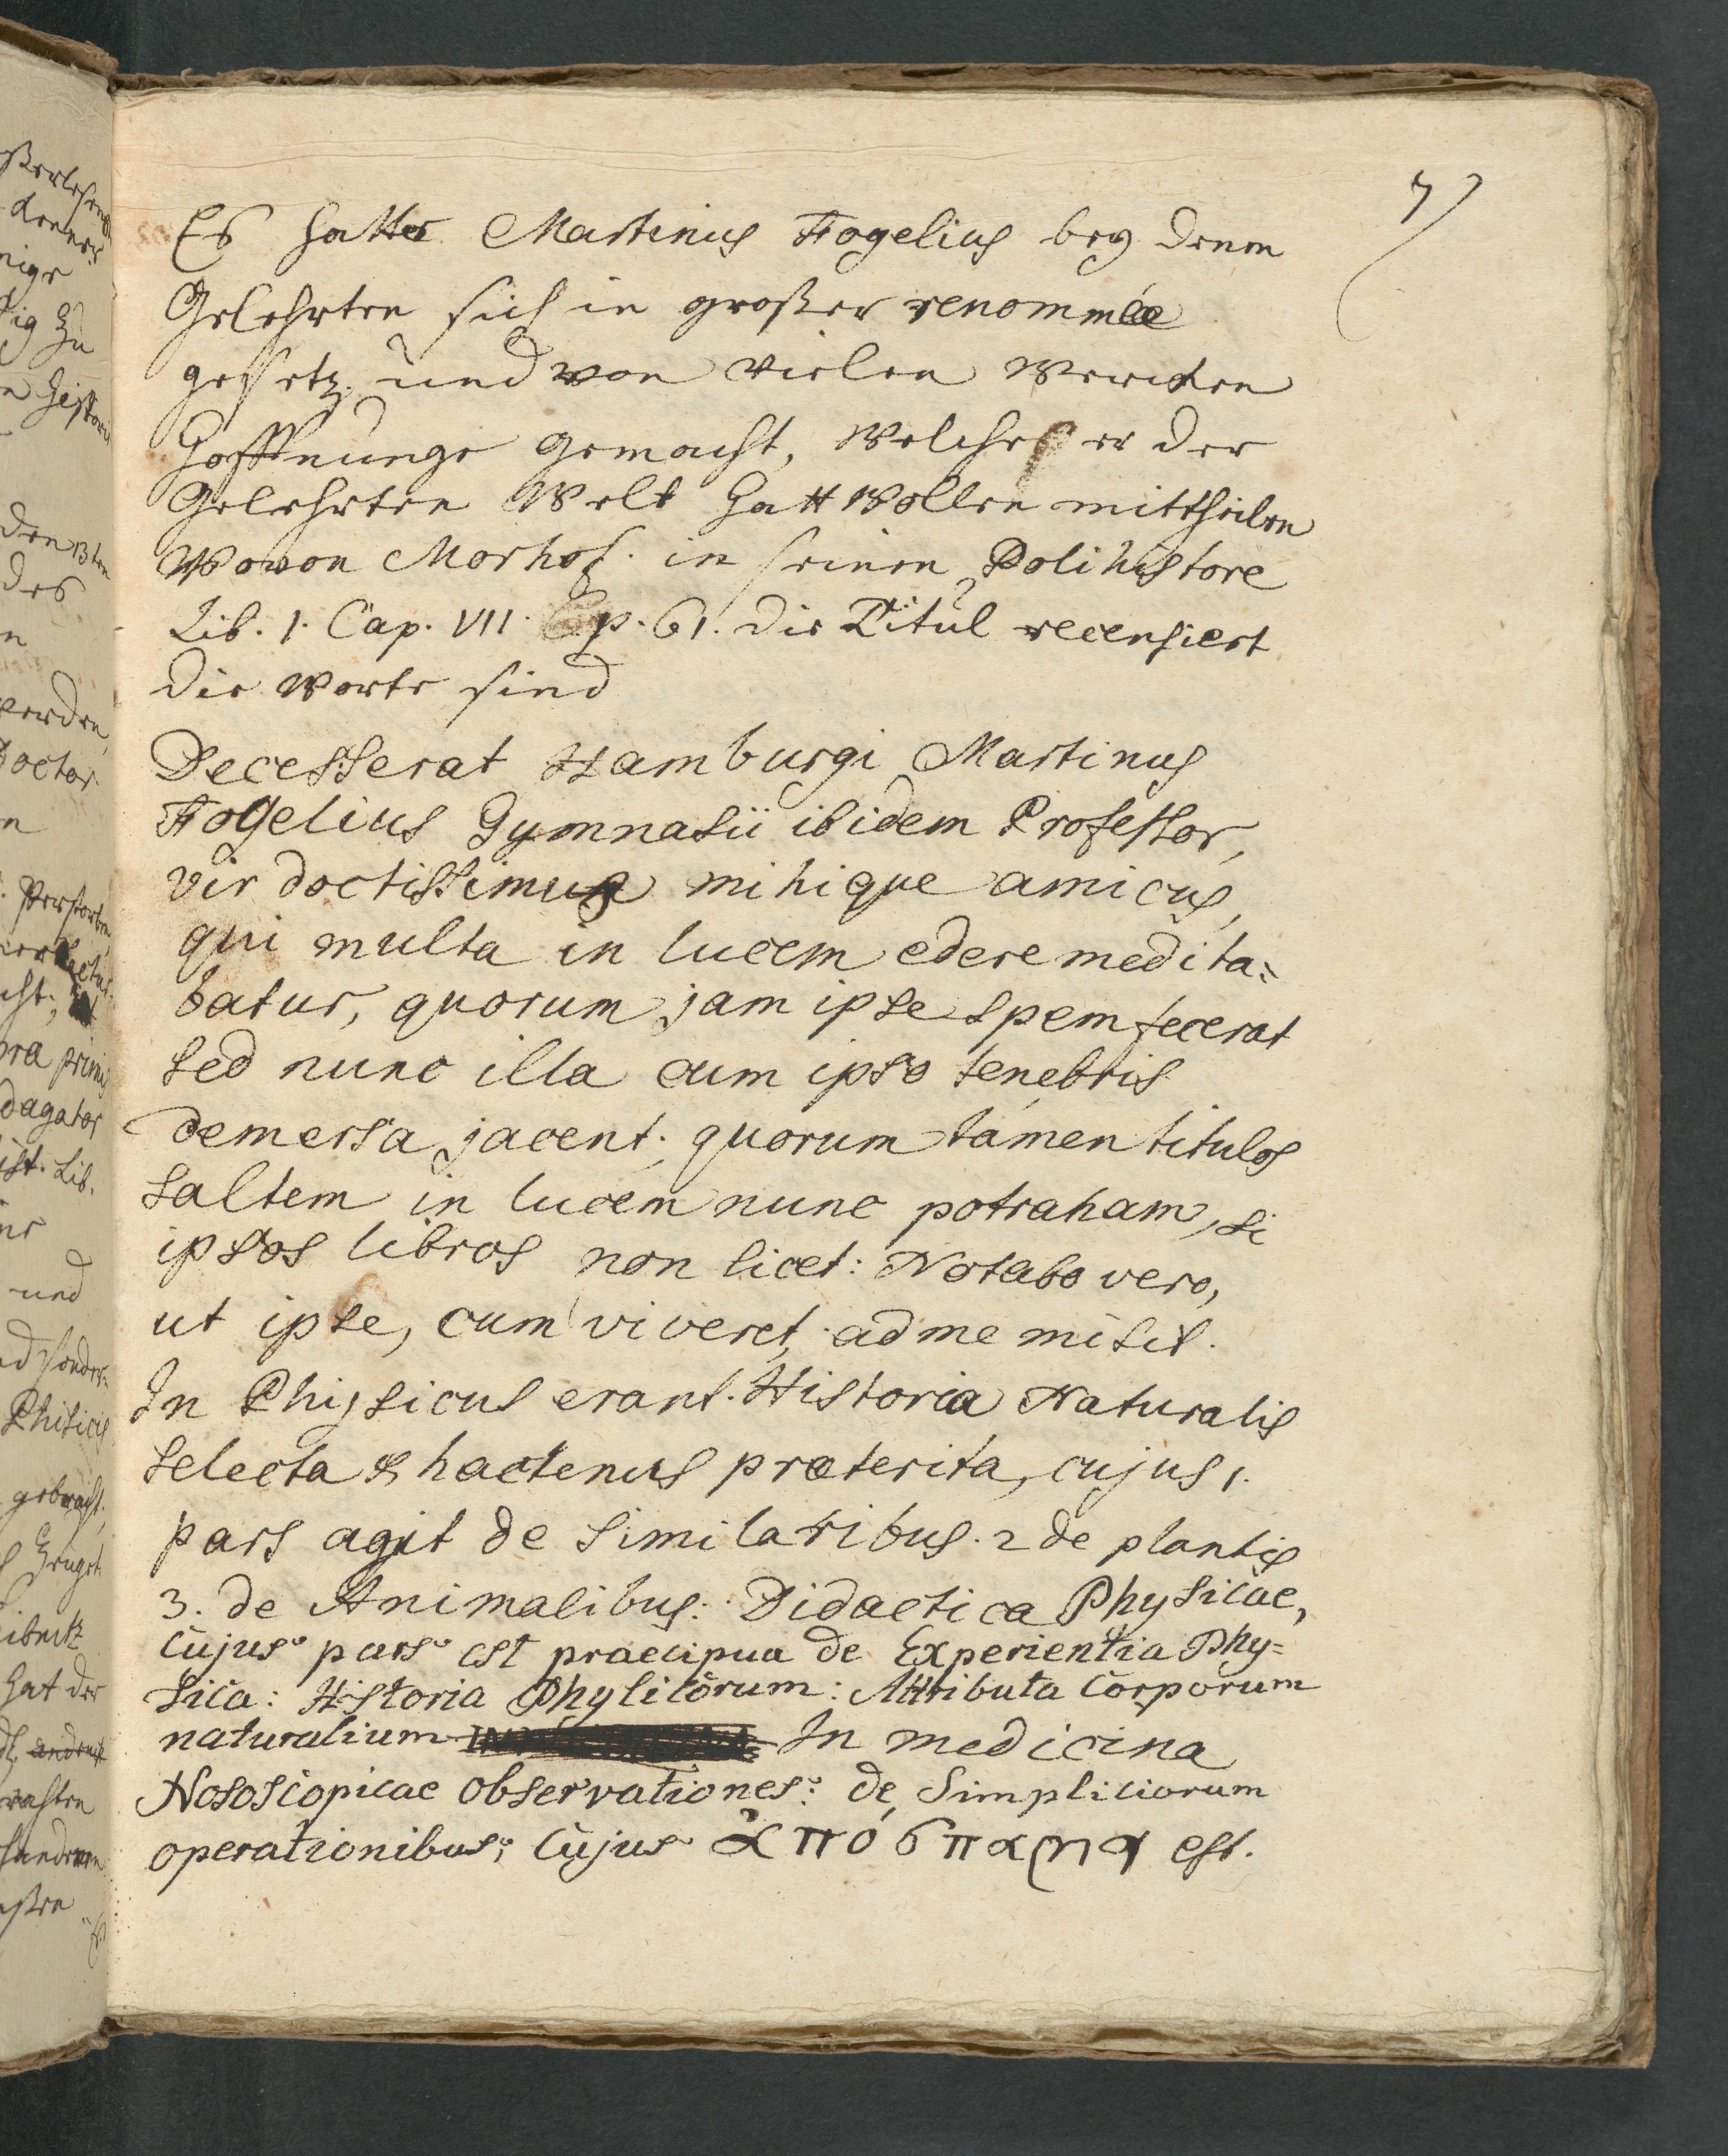 7
Es hatte Martinus Fogelius bey denen
Gelehrten sich in großer renommée
gesetz. und von vielen Wercken
Hoffnunge gemacht, Welche er der
Gelehrten Welt hatt wollen mittheilen
Wovon Morhof. in seinen Polihistore
Lib. 1. Cap. VII. p. 61. die Titul recensiert
die Worte sind
Decesserat Hamburgi Martinus
Fogelius Gymnasii ibidem Professor,
vir doctissimus mihique amicus,
qui multa in lucem edere medita=
batur, quorum jam ipse spem fecerat
sed nunc illa cum ipso tenebris
demersa jacent; quorum tamen titulos
saltem in lucem nunc potraham, si
ipsos libros non licet: Notabo vero,
ut ipse, cum viveret, ad me misit.
In Physicus erant. Historia Naturalis
selecta & hactenus præterita, cujus 1.
pars agit de similaribus. 2 de plantis
3. de Animalibus: Didactica Physicae,
cujus pars est praecipua de Experientia Phy=
sica: Historia Physicorum: Attributa Corporum
naturalium In medicina
Nososcopicae observationes: de Simpliciorum
operationibus; cujus ἀπόσπασμα est.